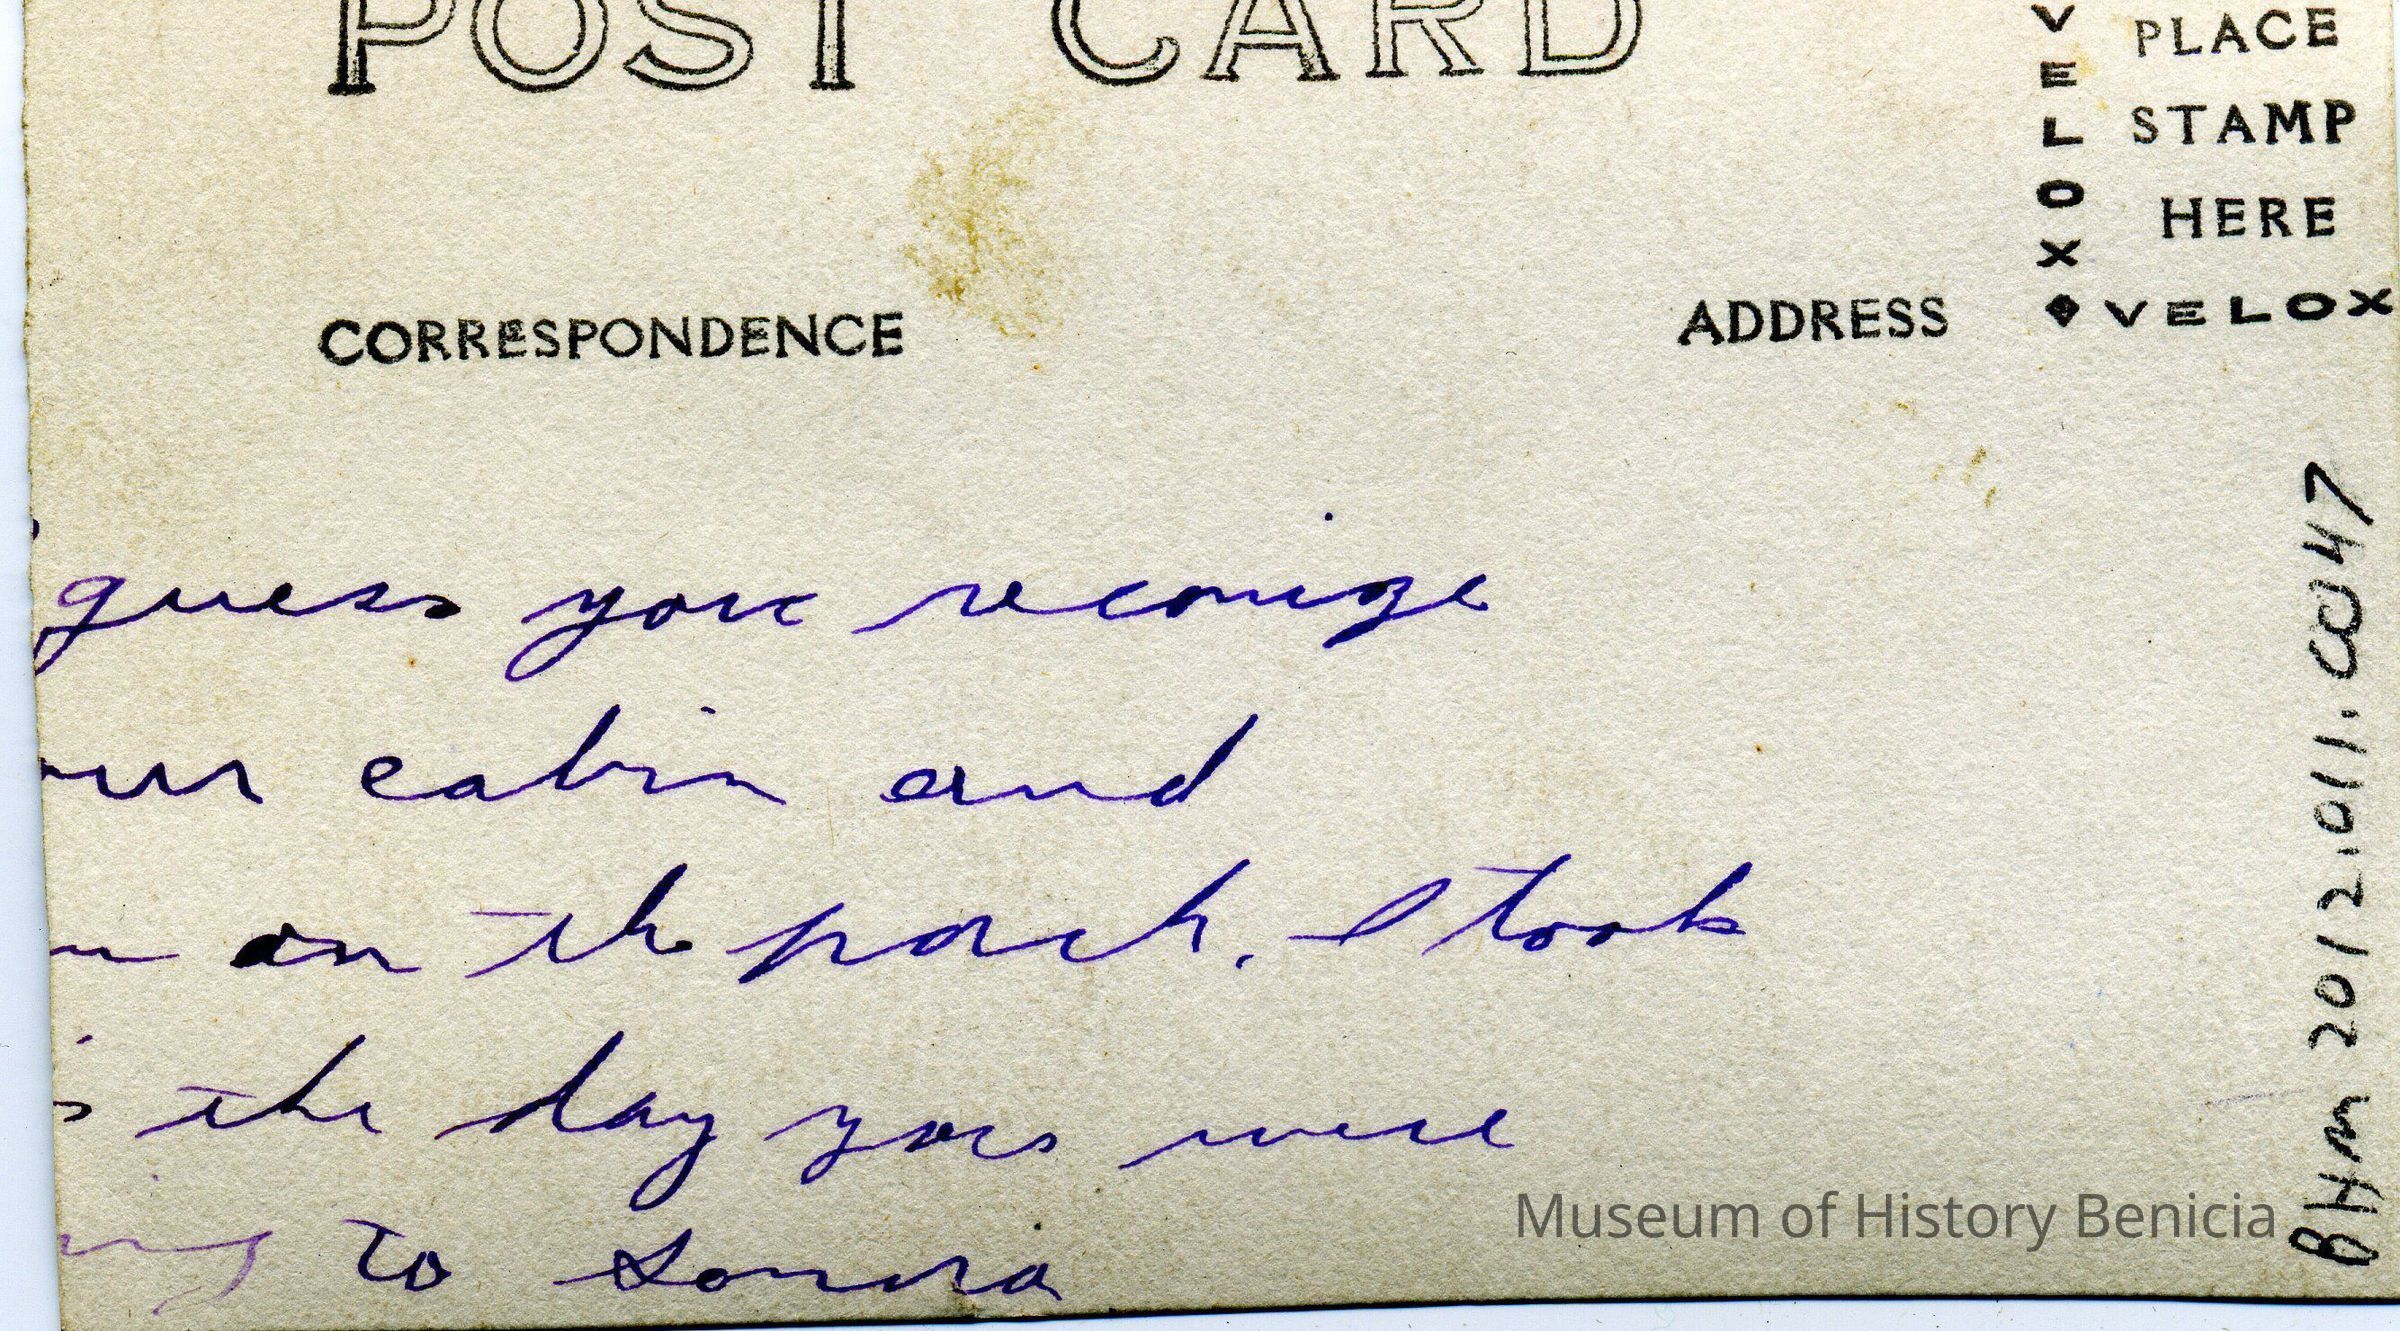 POST CARD
VELOX
PLACE
STAMP
HERE
VELOX
CORRESPONDENCE
ADDRESS
guess you reconize
our cabin and
on the porch. I took
s the day you were
to Sonora
BHM 2012.011.0047
Museum of History Benicia